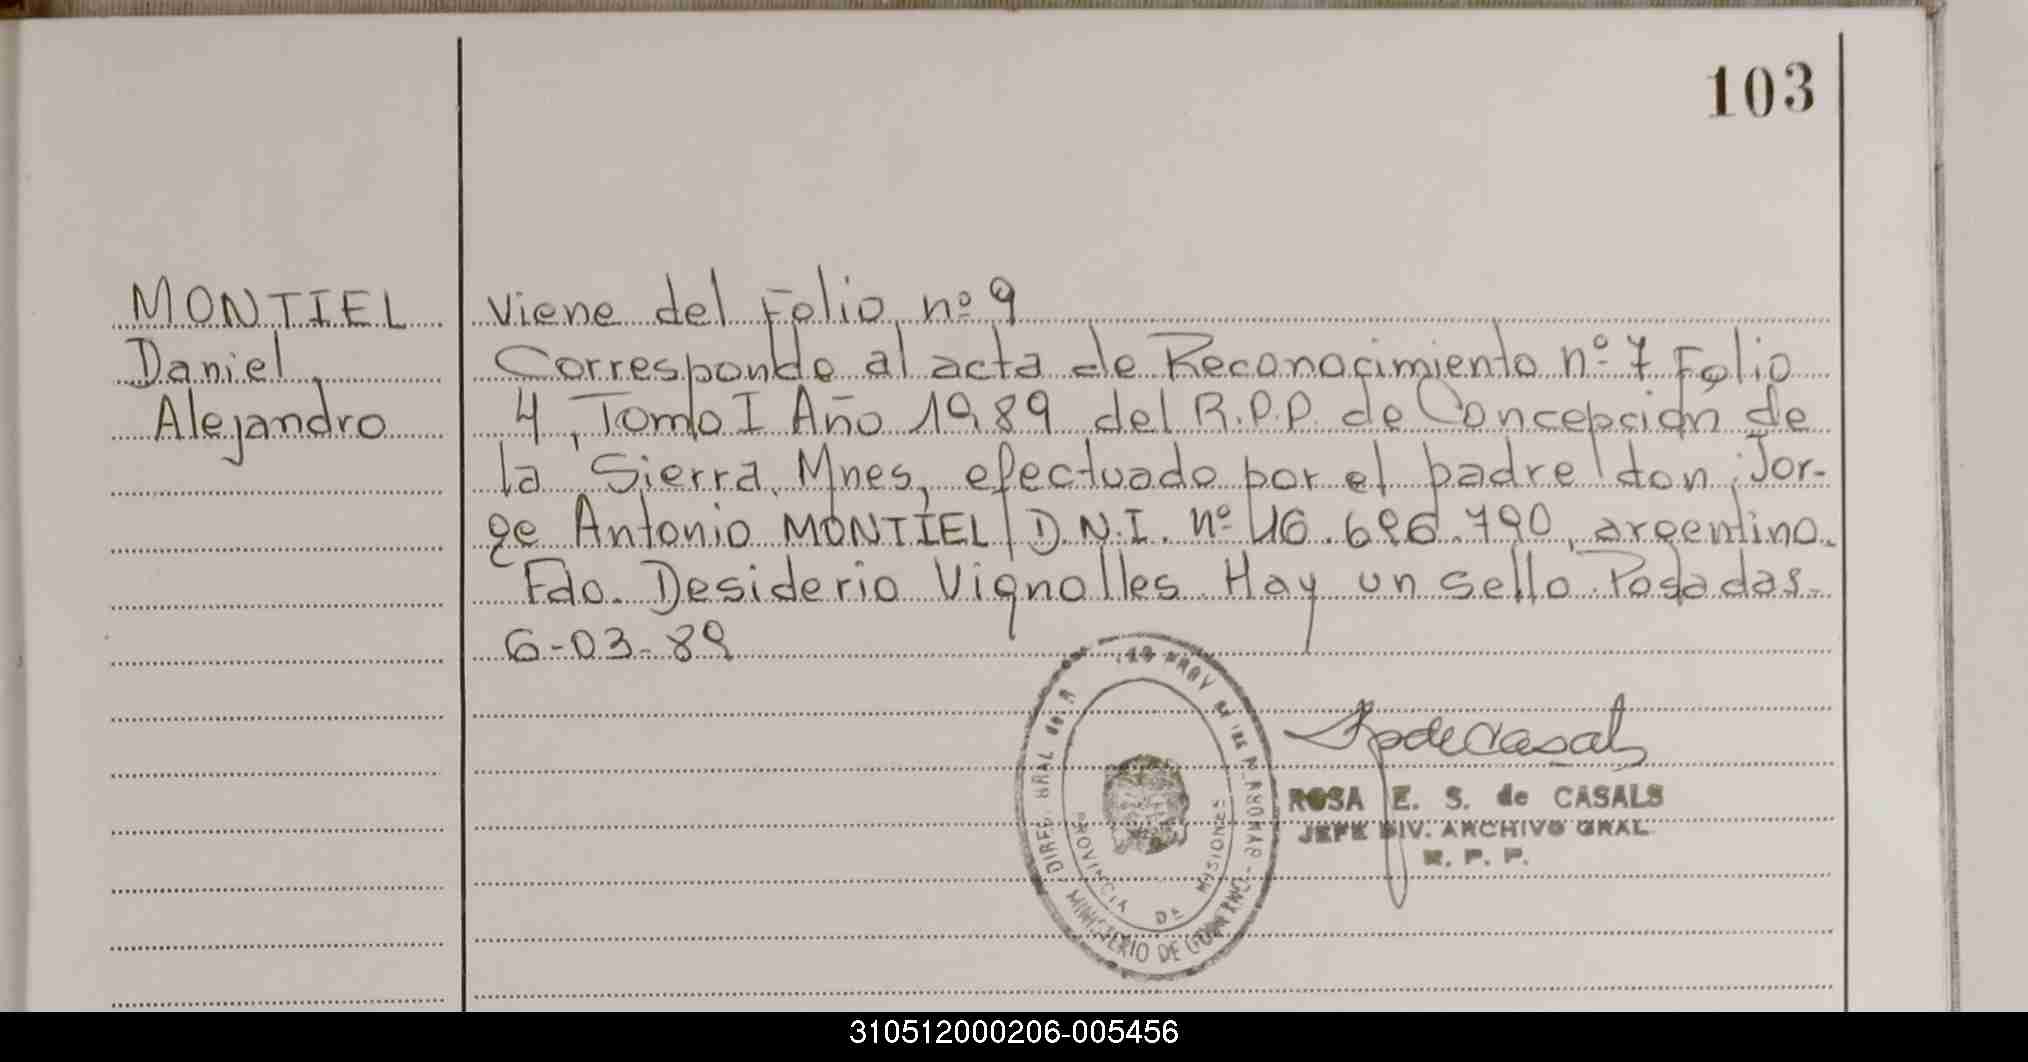 103
MONTIEL
Daniel
Alejandro
Viene del Folio nº 9
Corresponde al acta de Reconocimiento nº 7 Folio
4, Tomo I Año 1989 del R.P.P. de Concepción de
la Sierra, Mnes, efectuado por el padre don Jor-
ge Antonio MONTIEL D.N.I. nº 16.696.790, argentino.
Fdo. Desiderio Vignolles. Hay un sello. Posadas.
6-03-89
DIREC GRAL DE
PROVINCIA DE MISIONES
MINISTERIO DE GOBIERNO
ROSA E. S. de CASALS
JEFE DIV. ARCHIVO GRAL.
R. P. P.
310512000206-005456